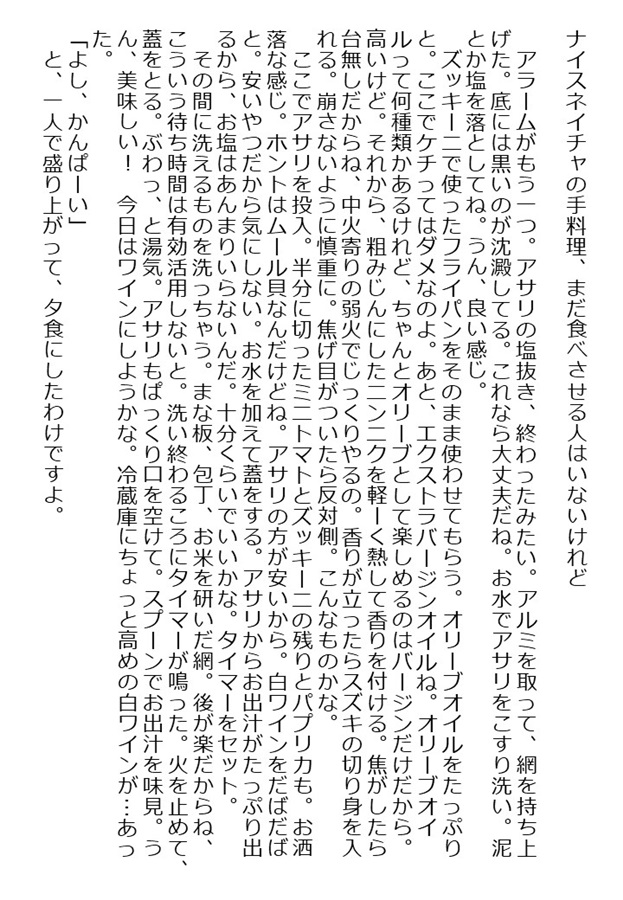 ナイスネイチャの手料理、まだ食べさせる人はいないけれど
　アラームがもう一つ。アサリの塩抜き、終わったみたい。アルミを取って、網を持ち上
げた。底には黒いのが沈澱してる。これなら大丈夫だね。お水でアサリをこすり洗い。泥
とか塩を落としてね。うん、良い感じ。
　ズッキーニで使ったフライパンをそのまま使わせてもらう。オリーブオイルをたっぷり
と。ここでケチってはダメなのよ。あと、エクストラバージンオイルね。オリーブオイ
ルって何種類かあるけれど、ちゃんとオリーブとして楽しめるのはバージンだけだから。
高いけど。それから、粗みじんにしたニンニクを軽ーく熱して香りを付ける。焦がしたら
台無しだからね、中火寄りの弱火でじっくりやるの。香りが立ったらスズキの切り身を入
れる。崩さないように慎重に。焦げ目がついたら反対側。こんなものかな。
　ここでアサリを投入。半分に切ったミニトマトとズッキーニの残りとパプリカも。お洒
落な感じ。ホントはムール貝なんだけどね。アサリの方が安いから。白ワインをだばだば
と。安いやつだから気にしない。お水を加えて蓋をする。アサリからお出汁がたっぷり出
るから、お塩はあんまりいらないんだ。十分くらいでいいかな。タイマーをセット。
　その間に洗えるものを洗っちゃう。まな板、包丁、お米を研いだ網。後が楽だからね、
こういう待ち時間は有効活用しないと。洗い終わるころにタイマーが鳴った。火を止めて、
蓋をとる。ぶわっ、と湯気。アサリもぱっくり口を空けて。スプーンでお出汁を味見。う
ん、美味しい！　今日はワインにしようかな。冷蔵庫にちょっと高めの白ワインが…あっ
た。
「よし、かんぱーい」
　と、一人で盛り上がって、夕食にしたわけですよ。